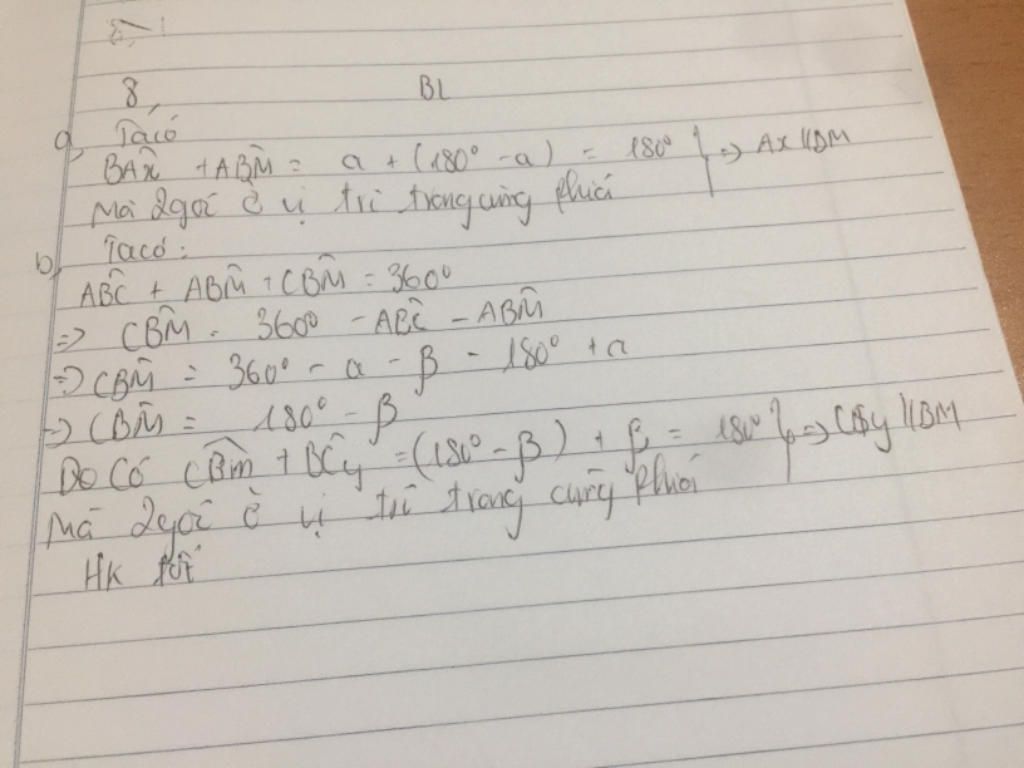 8, BL
a, Ta có
BAx̂ + ABM̂ = a + (180° - a) = 180° } => Ax // BM
Mà 2 góc ở vị trí trong cùng phía
b, Ta có:
ABĈ + ABM̂ + CBM̂ = 360°
=> CBM̂ = 360° - ABĈ - ABM̂
=> CBM̂ = 360° - a - β - 180° + a
=> CBM̂ = 180° - β
Do Có CBm̂ + BCŷ = (180° - β) + β = 180° } => Cy // BM
Mà 2 góc ở vị trí trong cùng phía
HK tốt